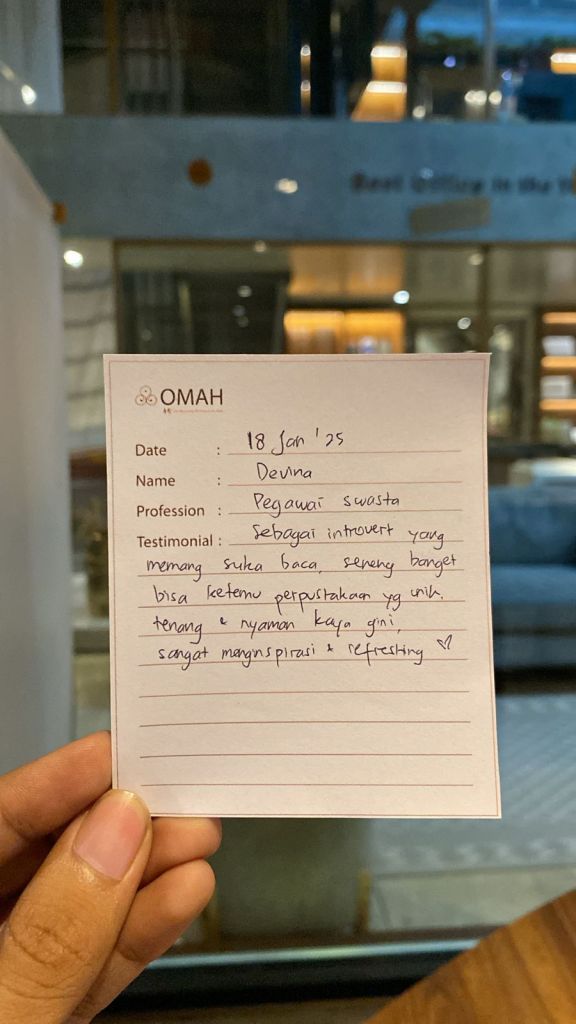 Best Office in the
OMAH
Date : 18 Jan '25
Name : Devina
Profession : Pegawai swasta
Testimonial : Sebagai introvert yang
memang suka baca, seneng banget
bisa ketemu perpustakaan yg unik,
tenang & nyaman kaya gini,
sangat menginspirasi & refreshing ♡